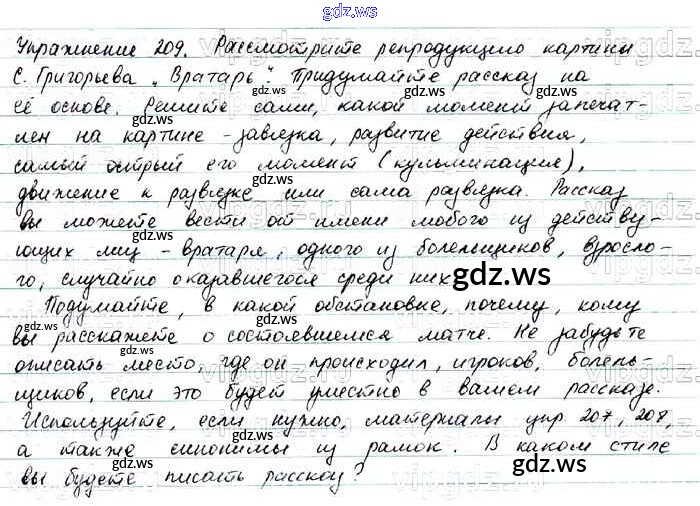 gdz.ws
Упражнение 209. Рассмотрите репродукцию картины
С. Григорьева „Вратарь". Придумайте рассказ на
её основе. Решите сами, какой момент запечат-
лен на картине - завязка, развитие действия,
самый острый его момент (кульминация),
движение к развязке или сама развязка. Рассказ
вы можете вести от имени любого из действу-
ющих лиц - вратаря, одного из болельщиков, взросло-
го, случайно оказавшегося среди них.
Подумайте, в какой обстановке, почему, кому
вы расскажете о состоявшемся матче. Не забудьте
описать место, где он происходил, игроков, болель-
щиков, если это будет уместно в вашем рассказе.
Используйте, если нужно, материалы упр 207, 208,
а также синонимы из рамок. В каком стиле
вы будете писать рассказ?